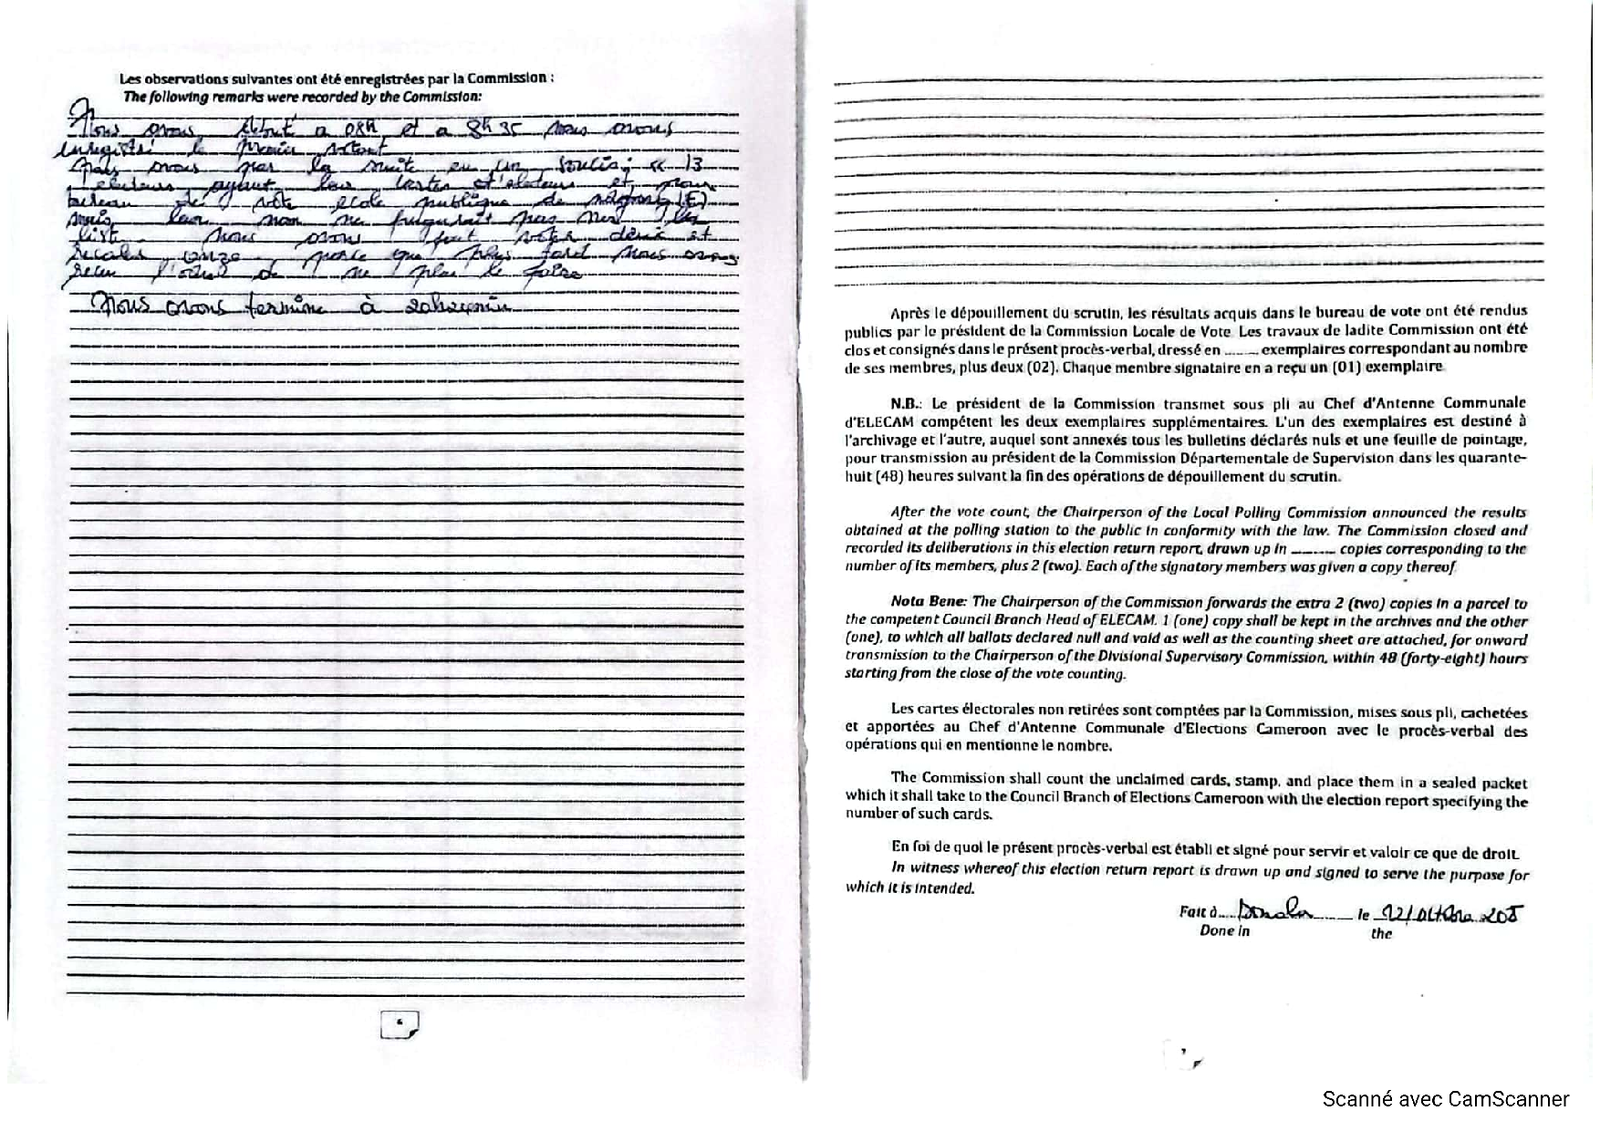 Les observations suivantes ont été enregistrées par la Commission :
The following remarks were recorded by the Commission:
Nous avons débuté a 08h et a 8h35 nous avons
enregistré le premier votant
Mais nous par la suite eu un soucis; « 13
electeurs ayant leur cartes d'electeurs et pour
bureau de vote ecole publique de (E)
mais leur nom ne figurait pas sur la
liste. Nous avons fait voter deux et
recaler onze parce que plus tard nous avons
recu l'ordre de ne plus le faire
Nous avons termine à 20h
6
Après le dépouillement du scrutin, les résultats acquis dans le bureau de vote ont été rendus
publics par le président de la Commission Locale de Vote. Les travaux de ladite Commission ont été
clos et consignés dans le présent procès-verbal, dressé en ........ exemplaires correspondant au nombre
de ses membres, plus deux (02). Chaque membre signataire en a reçu un (01) exemplaire
N.B.: Le président de la Commission transmet sous pli au Chef d'Antenne Communale
d'ELECAM compétent les deux exemplaires supplémentaires. L'un des exemplaires est destiné à
l'archivage et l'autre, auquel sont annexés tous les bulletins déclarés nuls et une feuille de pointage,
pour transmission au président de la Commission Départementale de Supervision dans les quarante-
huit (48) heures suivant la fin des opérations de dépouillement du scrutin.
After the vote count, the Chairperson of the Local Polling Commission announced the results
obtained at the polling station to the public in conformity with the law. The Commission closed and
recorded its deliberations in this election return report, drawn up in ......... copies corresponding to the
number of its members, plus 2 (two). Each of the signatory members was given a copy thereof
Nota Bene: The Chairperson of the Commission forwards the extra 2 (two) copies in a parcel to
the competent Council Branch Head of ELECAM. 1 (one) copy shall be kept in the archives and the other
(one), to which all ballots declared null and void as well as the counting sheet are attached, for onward
transmission to the Chairperson of the Divisional Supervisory Commission, within 48 (forty-eight) hours
starting from the close of the vote counting.
Les cartes électorales non retirées sont comptées par la Commission, mises sous pli, cachetées
et apportées au Chef d'Antenne Communale d'Elections Cameroon avec le procès-verbal des
opérations qui en mentionne le nombre.
The Commission shall count the unclaimed cards, stamp, and place them in a sealed packet
which it shall take to the Council Branch of Elections Cameroon with the election report specifying the
number of such cards.
En foi de quoi le présent procès-verbal est établi et signé pour servir et valoir ce que de droit.
In witness whereof this election return report is drawn up and signed to serve the purpose for
which it is intended.
Fait à.... Douala ........ le 12/octobre 2025
Done in the
Scanné avec CamScanner